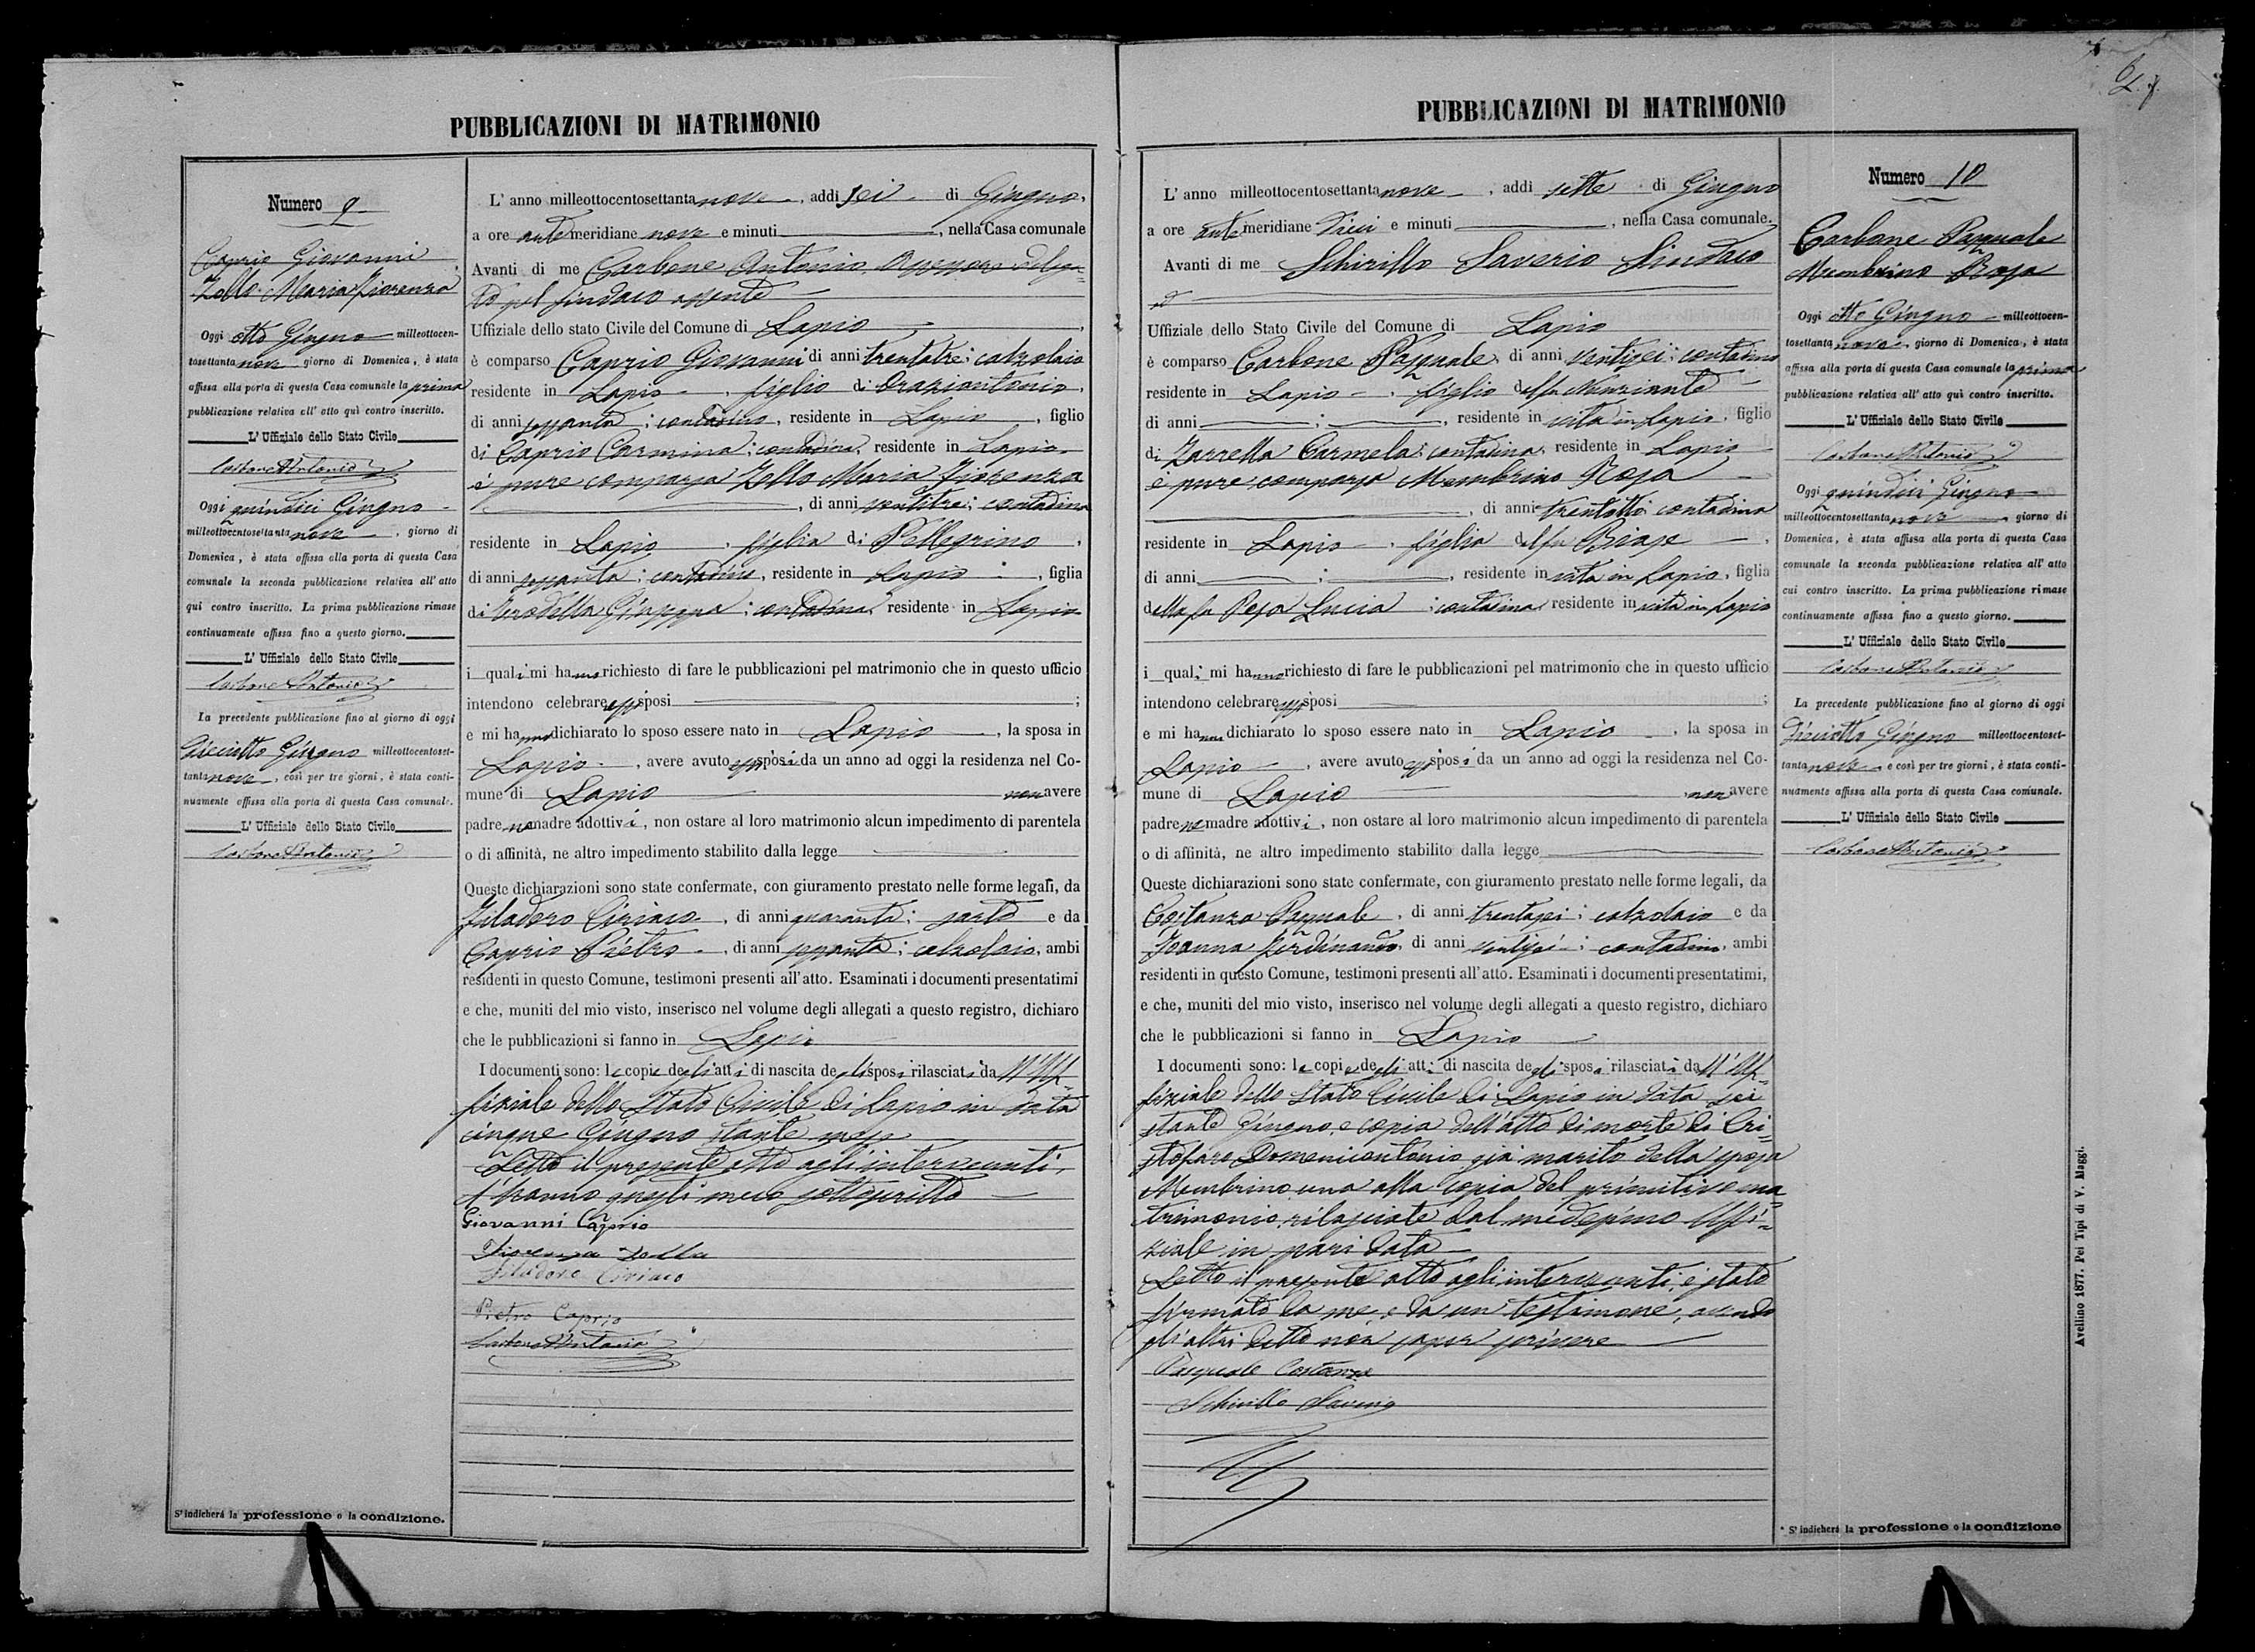 PUBBLICAZIONI DI MATRIMONIO
Numero 9
Caprio Giovanni
Zollo Maria Fiorenza
Oggi otto Giugno milleottocen-
tosettanta nove giorno di Domenica, è stata
affissa alla porta di questa Casa comunale la prima
pubblicazione relativa all' atto quì contro inscritto.
L' Uffiziale dello Stato Civile
Carbone Antonio
Oggi quindici Giugno
milleottocentosettanta nove, giorno di
Domenica, è stata affissa alla porta di questa Casa
comunale la seconda pubblicazione relativa all' atto
qui contro inscritto. La prima pubblicazione rimase
continuamente affissa fino a questo giorno.
L' Uffiziale dello Stato Civile
Carbone Antonio
La precedente pubblicazione fino al giorno di oggi
Dieciotto Giugno milleottocentoset-
tanta nove, così per tre giorni, è stata conti-
nuamente affissa alla porta di questa Casa comunale.
L' Uffiziale dello Stato Civile
Carbone Antonio
S' indicherà la professione o la condizione.
L' anno milleottocentosettanta nove, addì sei di Giugno,
a ore ante meridiane nove e minuti , nella Casa comunale
Avanti di me Carbone Antonio Assessore delega-
to pel sindaco assente
Uffiziale dello stato Civile del Comune di Lapio,
è comparso Caprio Giovanni di anni trentatre; calzolaio
residente in Lapio, figlio di Oraziantonio,
di anni sessanta; contadino, residente in Lapio, figlio
di Caprio Carmina; contadina, residente in Lapio
è pure comparsa Zollo Maria Fiorenza
, di anni ventitre; contadina
residente in Lapio, figlia di Pellegrino,
di anni sessanta; contadino, residente in Lapio, figlia
di Giuseppa; contadina, residente in Lapio
i quali mi hanno richiesto di fare le pubblicazioni pel matrimonio che in questo ufficio
intendono celebrare essi sposi ;
e mi hanno dichiarato lo sposo essere nato in Lapio, la sposa in
Lapio, avere avuto essi sposi da un anno ad oggi la residenza nel Co-
mune di Lapio non avere
padre nè madre adottivi, non ostare al loro matrimonio alcun impedimento di parentela
o di affinità, ne altro impedimento stabilito dalla legge
Queste dichiarazioni sono state confermate, con giuramento prestato nelle forme legali, da
Filadoro Ciriaco, di anni quaranta; sarto e da
Caprio Pietro, di anni sessanta; calzolaio, ambi
residenti in questo Comune, testimoni presenti all' atto. Esaminati i documenti presentatimi
e che, muniti del mio visto, inserisco nel volume degli allegati a questo registro, dichiaro
che le pubblicazioni si fanno in Lapio
I documenti sono: le copie degli atti di nascita degli sposi rilasciati dall' Uf-
fiziale dello Stato Civile di Lapio in data
cinque Giugno stante mese
Letto il presente atto agli intervenuti,
l' hanno questi meco sottoscritto
Giovanni Caprio
Fiorenza Zollo
Filadoro Ciriaco
Pietro Caprio
Carbone Antonio
PUBBLICAZIONI DI MATRIMONIO
L' anno milleottocentosettanta nove, addì sette di Giugno
a ore ante meridiane dieci e minuti , nella Casa comunale.
Avanti di me Schirillo Saverio Sindaco
ed
Uffiziale dello Stato Civile del Comune di Lapio
è comparso Carbone Pasquale, di anni ventisei; contadino
residente in Lapio, figlio del fu Nunziante
di anni ; , residente in vita in Lapio, figlio
di Zarrella Carmela; contadina, residente in Lapio
è pure comparsa Membrino Rosa
, di anni trentotto contadina
residente in Lapio, figlia del fu Biase,
di anni ; , residente in vita in Lapio, figlia
della fu Lucia; contadina, residente in vita in Lapio
i quali mi hanno richiesto di fare le pubblicazioni pel matrimonio che in questo ufficio
intendono celebrare essi sposi ;
e mi hanno dichiarato lo sposo essere nato in Lapio, la sposa in
Lapio, avere avuto essi sposi da un anno ad oggi la residenza nel Co-
mune di Lapio non avere
padre nè madre adottivi, non ostare al loro matrimonio alcun impedimento di parentela
o di affinità, ne altro impedimento stabilito dalla legge
Queste dichiarazioni sono state confermate, con giuramento prestato nelle forme legali, da
Costanza Pasquale, di anni trentasei; calzolaio e da
Ioanna Ferdinando, di anni ventisei; contadino, ambi
residenti in questo Comune, testimoni presenti all' atto. Esaminati i documenti presentatimi,
e che, muniti del mio visto, inserisco nel volume degli allegati a questo registro, dichiaro
che le pubblicazioni si fanno in Lapio
I documenti sono: le copie degli atti di nascita degli sposi rilasciati dall' Uf-
fiziale dello Stato Civile di Lapio in data sei
stante Giugno, e copia dell' atto di morte di Cri-
stofaro Domenicantonio già marito della sposa
Membrino una alla copia del primitivo ma
trimonio rilasciate dal medesimo Uffi-
ziale in pari data
Letto il presente atto agli intervenuti, è stato
firmato da me, e da un testimone, avendo
gli altri detto non saper scrivere
Pasquale Costanza
Schirillo Saverio
Numero 10
Carbone Pasquale
Membrino Rosa
Oggi otto Giugno milleottocen-
tosettanta nove, giorno di Domenica, è stata
affissa alla porta di questa Casa comunale la prima
pubblicazione relativa all' atto quì contro inscritto.
L' Uffiziale dello Stato Civile
Carbone Antonio
Oggi quindici Giugno
milleottocentosettanta nove, giorno di
Domenica, è stata affissa alla porta di questa Casa
comunale la seconda pubblicazione relativa all' atto
cui contro inscritto. La prima pubblicazione rimase
continuamente affissa fino a questo giorno.
L' Uffiziale dello Stato Civile
Carbone Antonio
La precedente pubblicazione fino al giorno di oggi
Dieciotto Giugno milleottocentoset-
tanta nove e così per tre giorni, è stata conti-
nuamente affissa alla porta di questa Casa comunale.
L' Uffiziale dello Stato Civile
Carbone Antonio
* S' indicherà la professione o la condizione
Avellino 1877. Pei Tipi di V. Maggi.